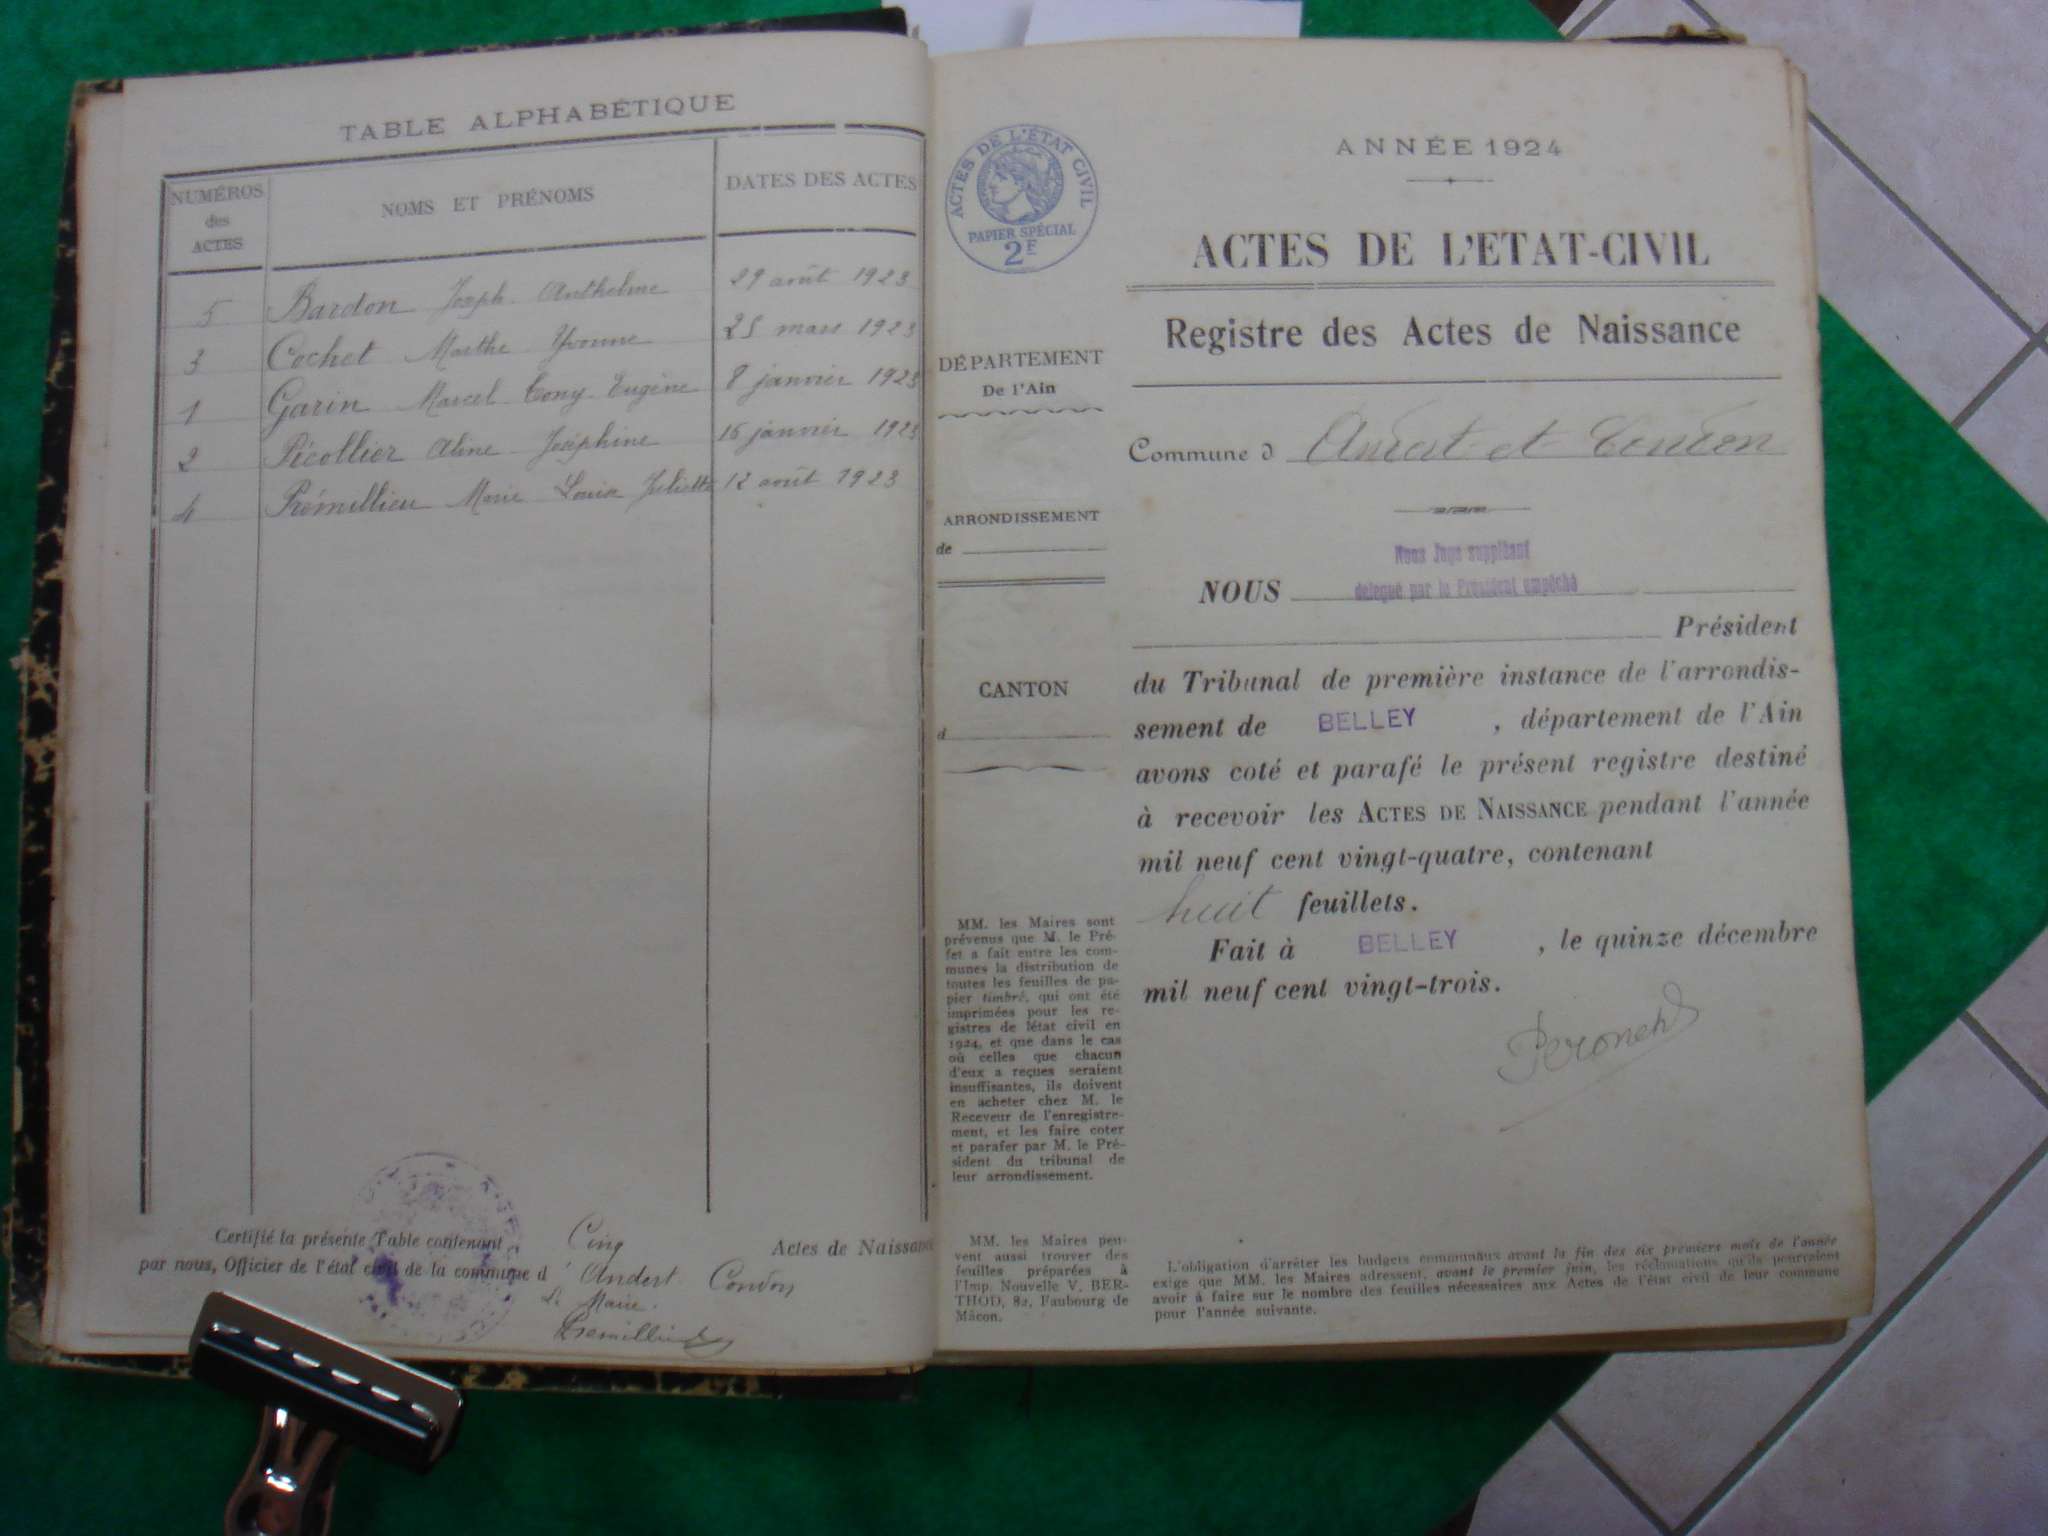 TABLE ALPHABÉTIQUE
NUMÉROS
des
ACTES
NOMS ET PRÉNOMS
DATES DES ACTES
5 Bardon Joseph Anthelme 29 août 1923
3 Cochet Marthe Yvonne 25 mars 1923
1 Garin Marcel Tony Eugène 8 janvier 1923
2 Picollier Aline Joséphine 16 janvier 1923
4 Prémillieu Marie Louise Juliette 12 août 1923
Certifié la présente Table contenant Cinq Actes de Naissance
par nous, Officier de l'état civil de la commune d' Andert Condon
Le Maire.
Premillieu
ACTES DE L'ÉTAT CIVIL
PAPIER SPÉCIAL
2F
DÉPARTEMENT
De l'Ain
ARRONDISSEMENT
de
CANTON
d
MM. les Maires sont
prévenus que M. le Pré-
fet a fait entre les com-
munes la distribution de
toutes les feuilles de pa-
pier timbré, qui ont été
imprimées pour les re-
gistres de létat civil en
1924, et que dans le cas
où celles que chacun
d'eux a reçues seraient
insuffisantes, ils doivent
en acheter chez M. le
Receveur de l'enregistre-
ment, et les faire coter
et parafer par M. le Pré-
sident du tribunal de
leur arrondissement.
MM. les Maires peu-
vent aussi trouver des
feuilles préparées à
l'Imp. Nouvelle V. BER-
THOD, 82, Faubourg de
Mâcon.
ANNÉE 1924
ACTES DE L'ETAT-CIVIL
Registre des Actes de Naissance
Commune d Andert et Condon
Nous Juge suppléant
délégué par le Président empêché
NOUS
Président
du Tribunal de première instance de l'arrondis-
sement de BELLEY , département de l'Ain
avons coté et parafé le présent registre destiné
à recevoir les ACTES DE NAISSANCE pendant l'année
mil neuf cent vingt-quatre, contenant
huit feuillets.
Fait à BELLEY , le quinze décembre
mil neuf cent vingt-trois.
L'obligation d'arrêter les budgets communaux avant la fin des six premiers mois de l'année
exige que MM. les Maires adressent, avant le premier juin, les réclamations qu'ils pourraient
avoir à faire sur le nombre des feuilles nécessaires aux Actes de l'état civil de leur commune
pour l'année suivante.